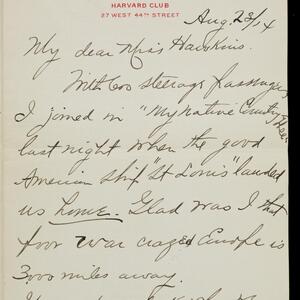 HARVARD CLUB
27 WEST 44TH STREET
Aug. 23/14
My dear Miss Hawkins.
With 600 steerage passengers
I joined in "My Native Country Thee"
last night when the good
American ship "St Louis" landed
us home. Glad was I that
poor war crazed Europe is
3000 miles away.